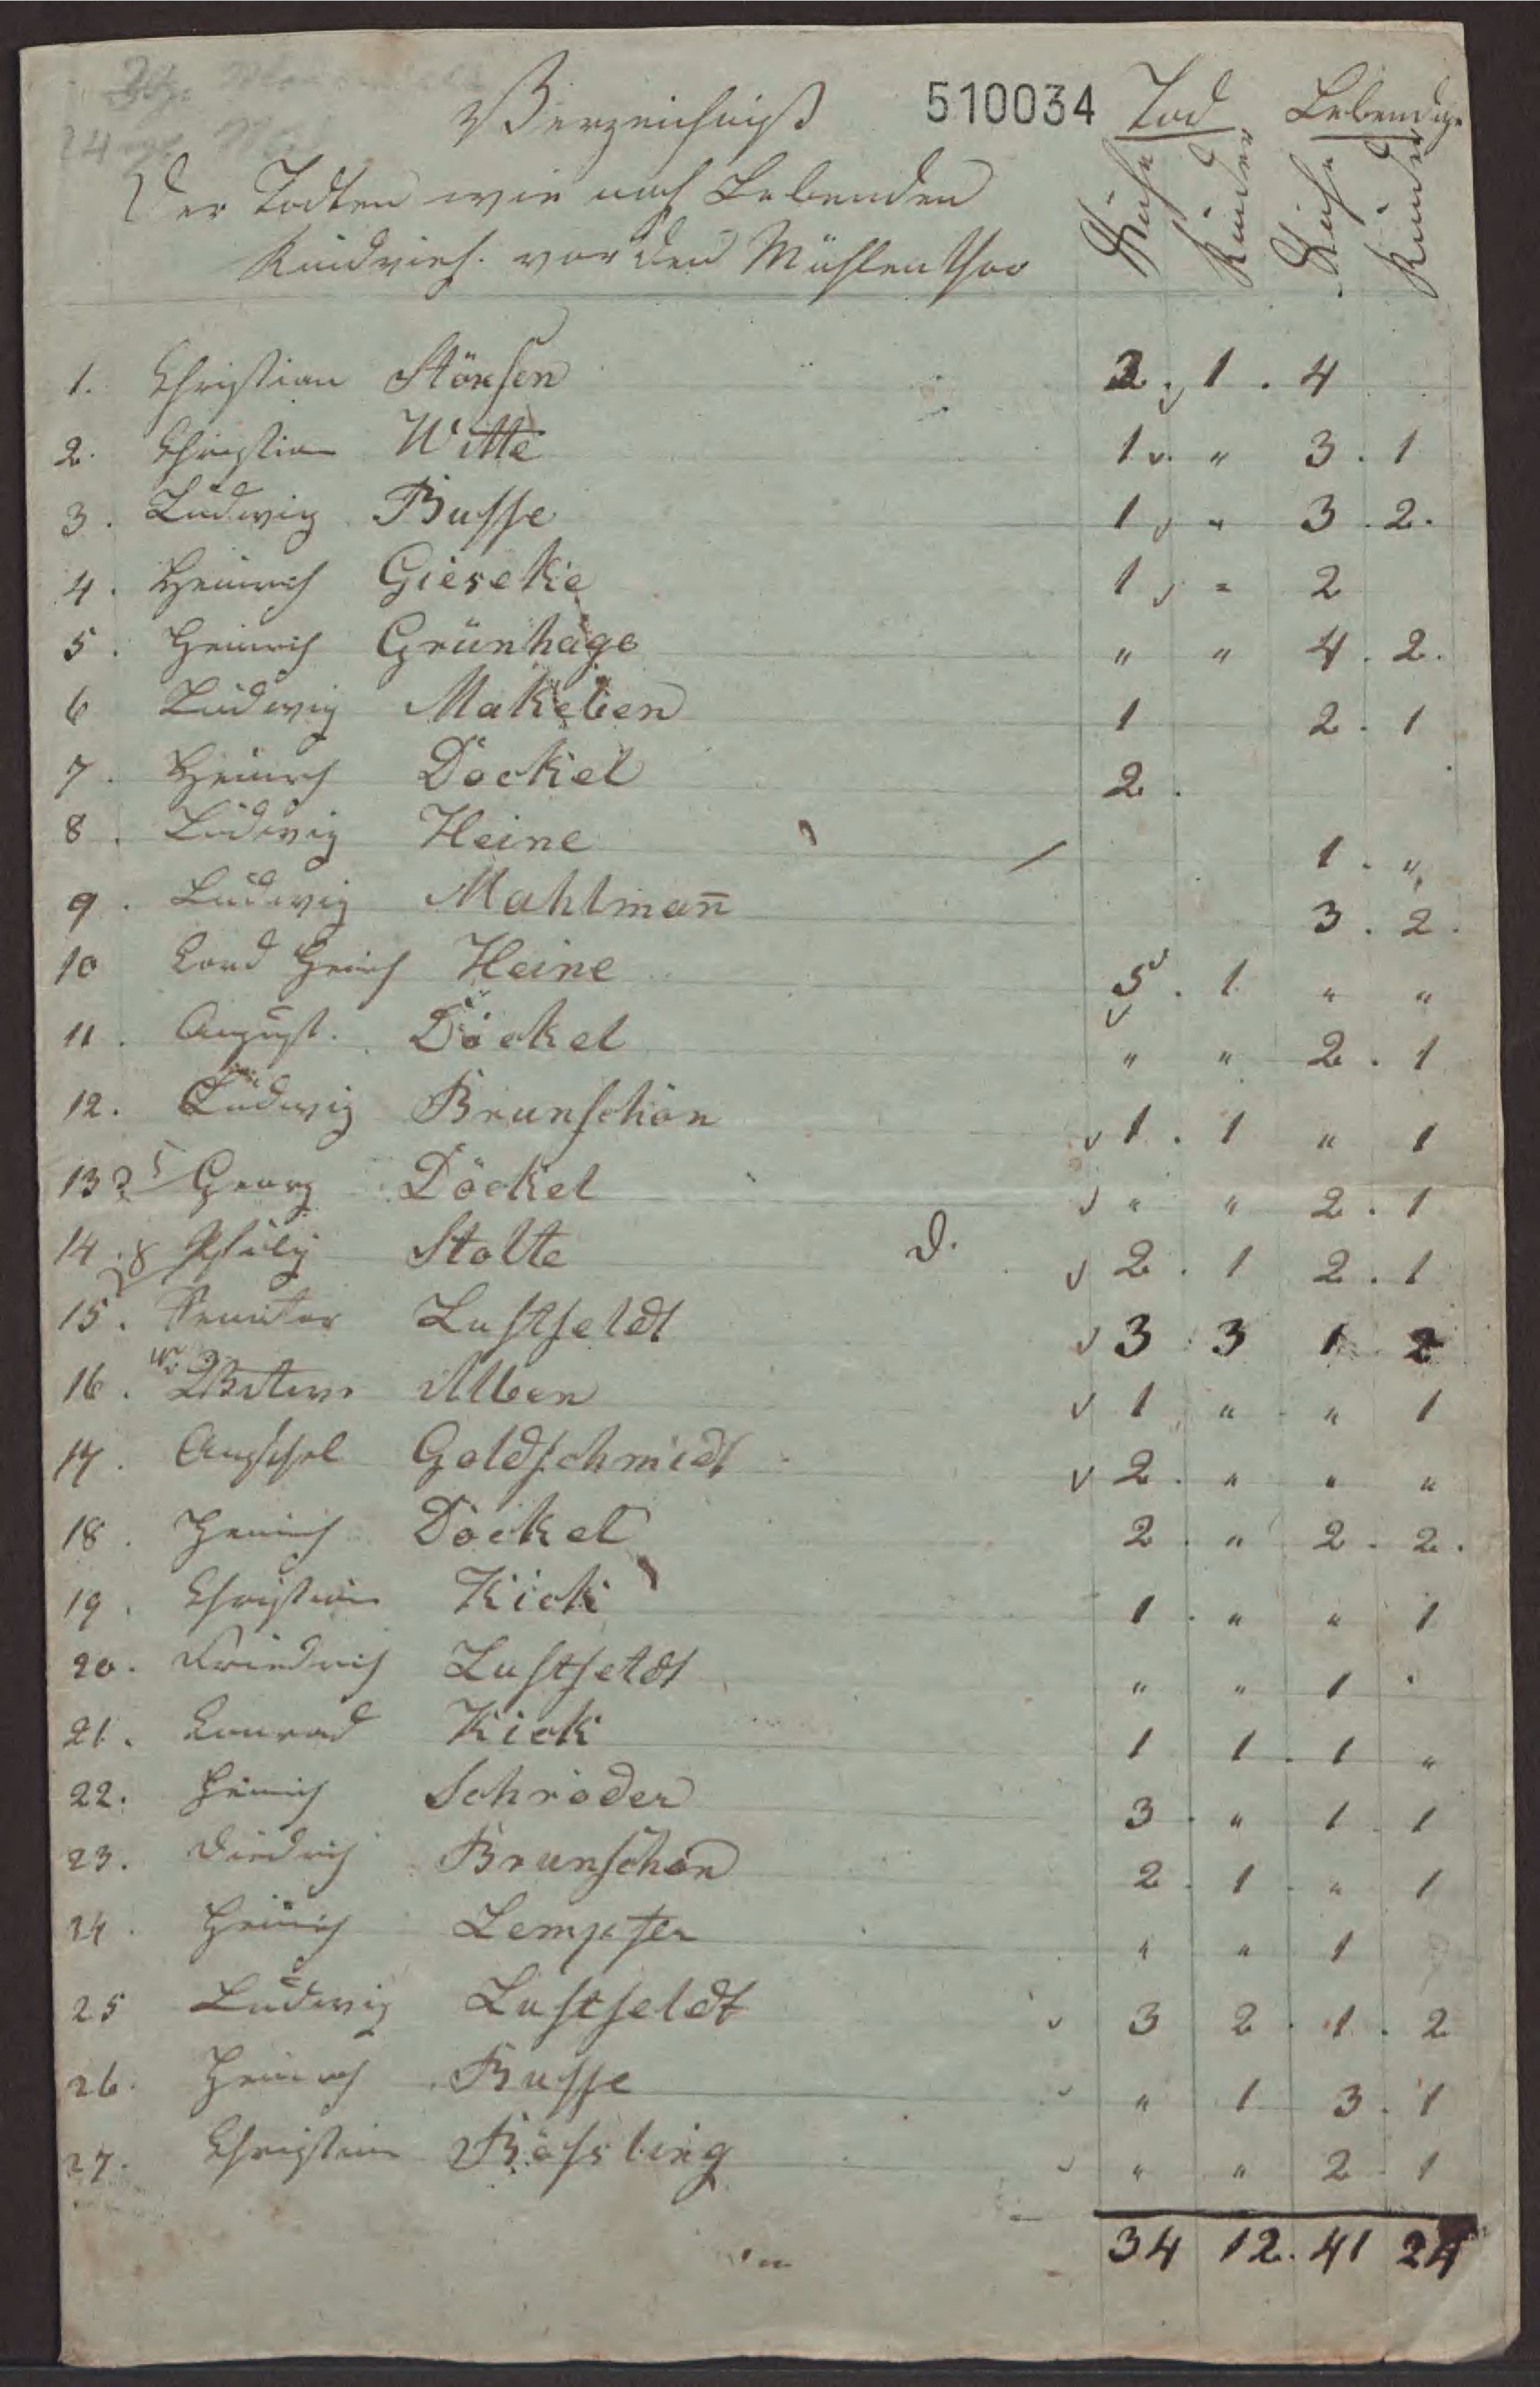 Verzeichniß 510034 Tod Lebendige
Der Todten wie noch Lebenden
Rindvieh. vor den Mühlenthor
Kühe Rinder Kühe Rinder
1. Christian Störsen 2. 1. 4
2. Christian Witte 1 " 3. 1
3. Ludwig Busse 1 " 3. 2.
4. Heinrich Gieseke 1 " 2
5. Heinrich Grünhage " " 4. 2.
6 Ludwig Makeben 1 2. 1
7. Heinrich Döckel 2.
8. Ludwig Heine 1. "
9. Ludwig Mahlmañ 3. 2.
10 Cord Heinrich Heine 5. 1 " "
11. August. Döckel " " 2. 1
12. Ludwig Brunschön 1. 1 " 1
13 Georg Döckel " " 2. 1
14. Stolte D. 2. 1 2. 1
15. Senator Lustfeldt 3 3 1 2
16. Alben 1 " " 1
17. Anschel Goldschmidt 2. " " "
18. Heinrich Döckel 2 " 2. 2.
19. Christian Kick 1. " " 1
20. Friedrich Lustfeldt " " 1
21. Conrad Kick 1 1. 1 "
22. Heinrich Schröder 3. " 1. 1
23. Diedrich Brunschön 2. 1. " 1
24. Heinrich Lempfer " " 1
25 Ludwig Lustfeldt 3 2. 1. 2
26. Heinrich Busse " 1 3. 1
27. Christian Bössling " " 2 1
34 12. 41 24